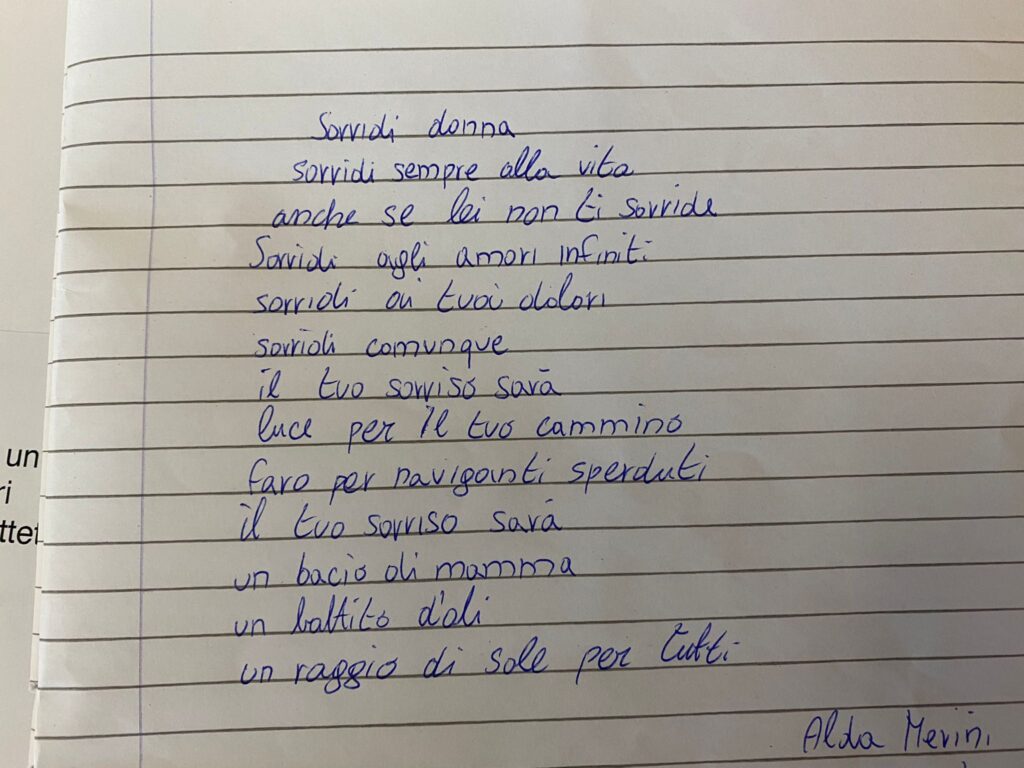 Sorridi donna
sorridi sempre alla vita
anche se lei non ti sorride
Sorridi agli amori infiniti
sorridi ai tuoi dolori
sorridi comunque
il tuo sorriso sarà
luce per il tuo cammino
faro per naviganti sperduti
il tuo sorriso sarà
un bacio di mamma
un battito d'ali
un raggio di sole per tutti
Alda Merini
un
ri